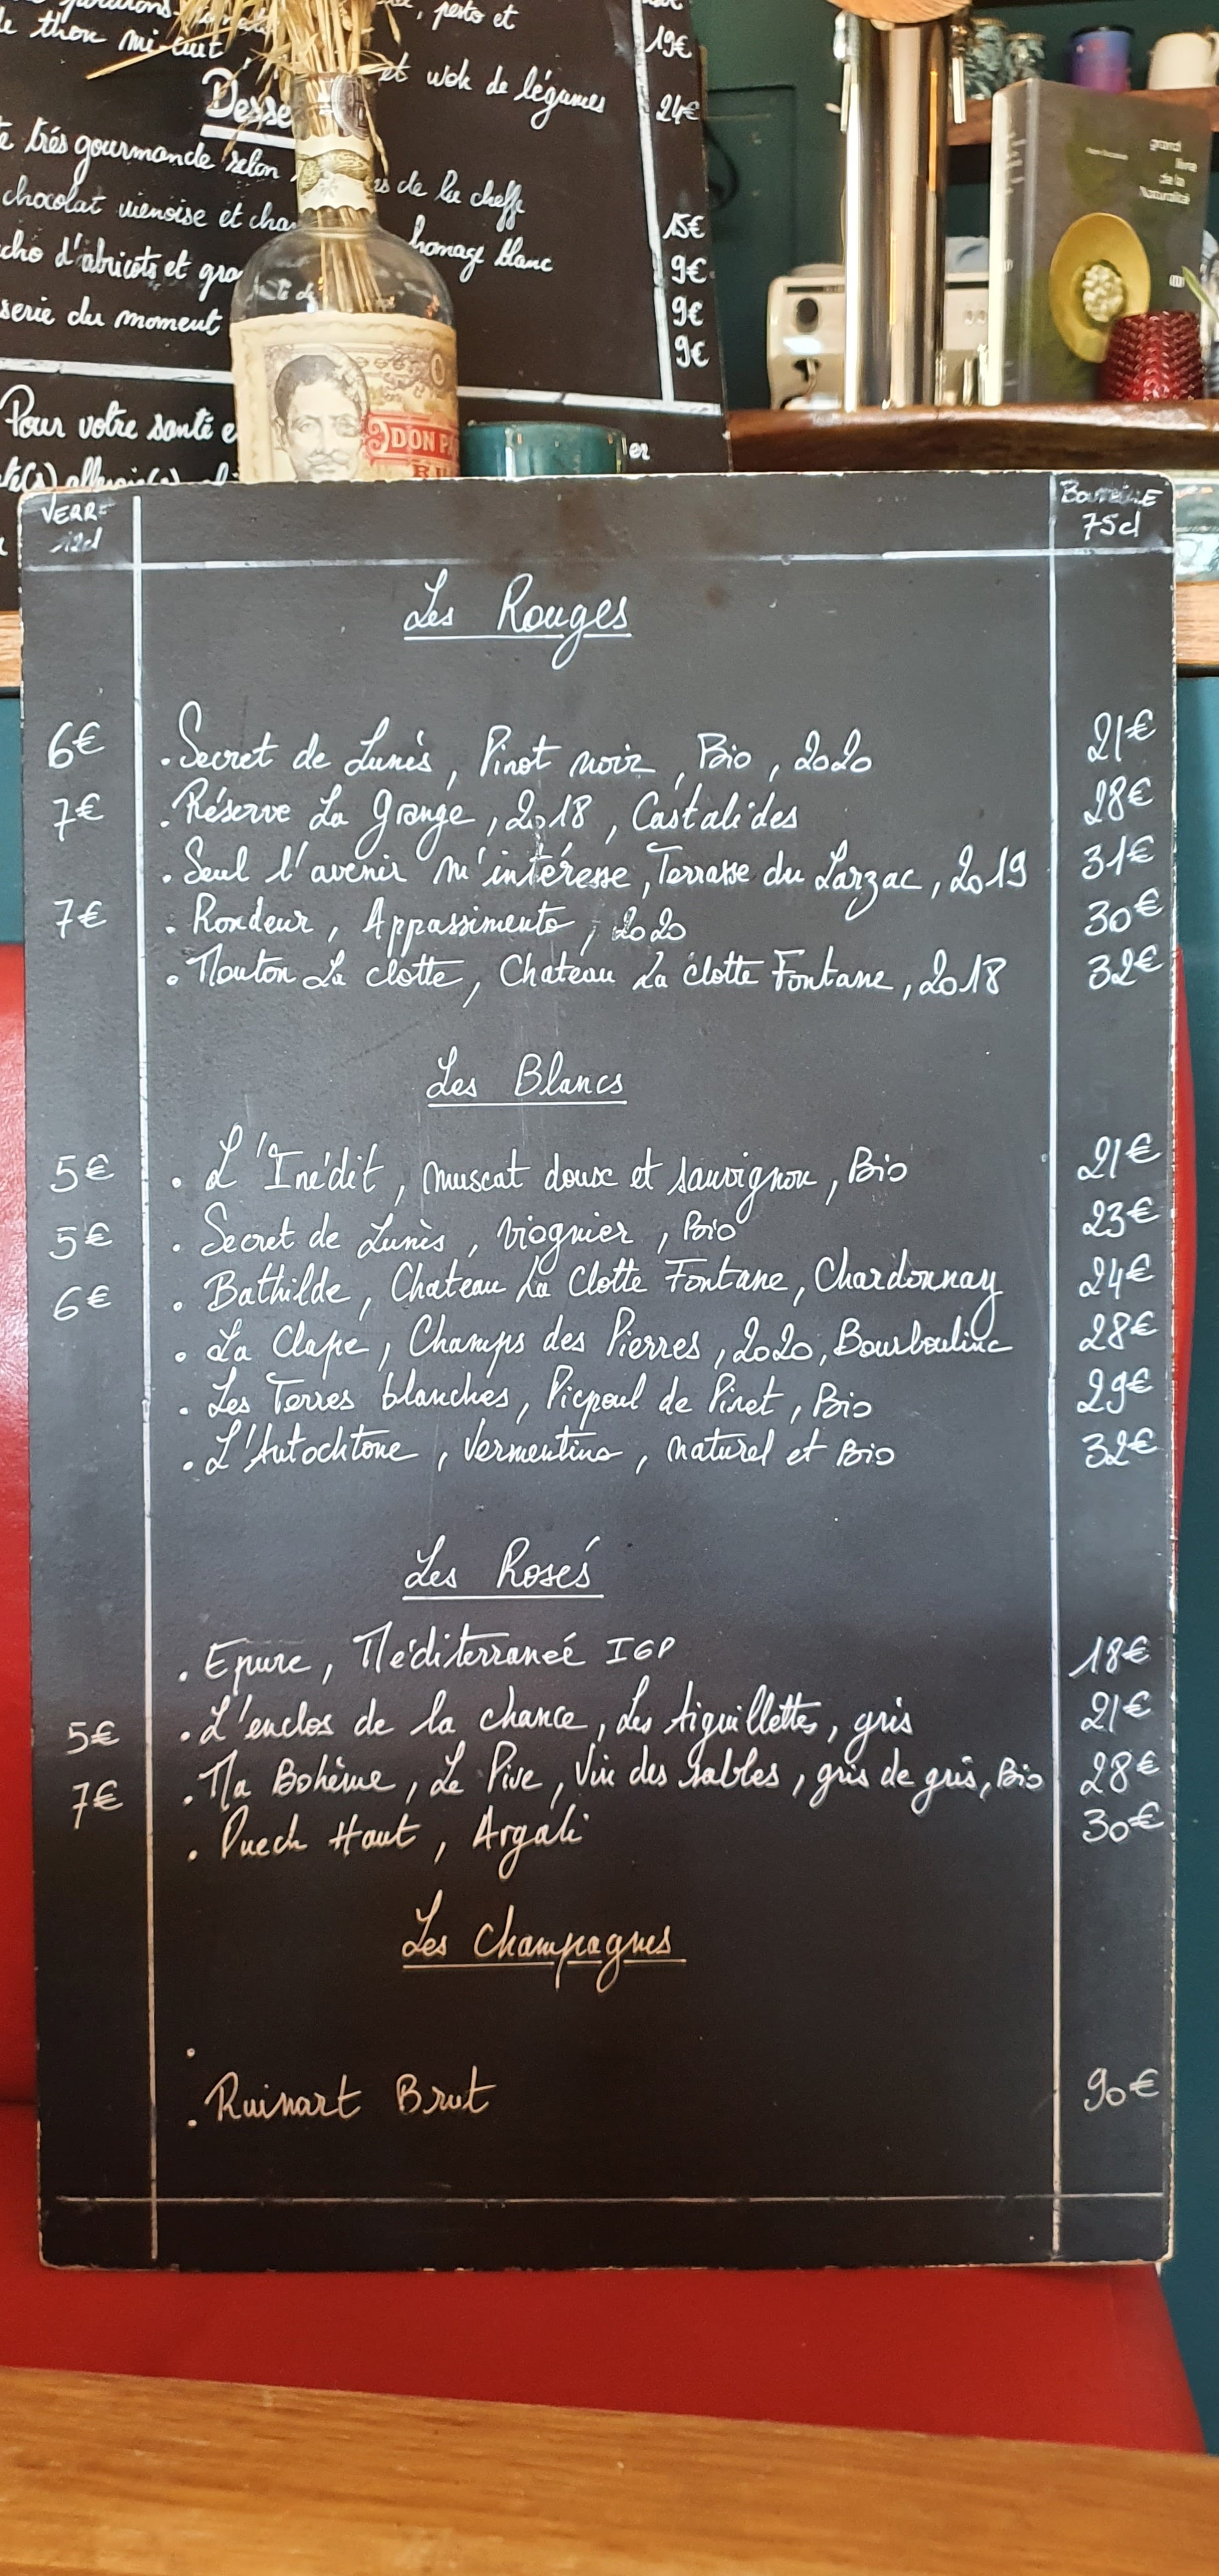 , pesto et
19€
thon mi-cuit
et wok de légumes
24€
Desse
très gourmande selon
de la cheffe
15€
chocolat viénoise et cha
homage blanc
9€
cho d'abricots et gra
9€
serie du moment
9€
Pour votre santé e
er
DON P
grand
livre
de la
Naturalité
VERRE
12cl
Bouteille
75cl
Les Rouges
6€ . Secret de Lunès, Pinot noir, Bio, 2020 21€
7€ . Réserve La Grange, 2018, Castalides 28€
. Seul l'avenir m'intéresse, Terrasse du Larzac, 2019 31€
7€ . Rondeur, Appassimento, 2020 30€
. Mouton La clotte, Chateau La clotte Fontane, 2018 32€
Les Blancs
5€ . L'Inédit, muscat doux et sauvignon, Bio 21€
5€ . Secret de Lunès, viognier, Bio 23€
6€ . Bathilde, Chateau La Clotte Fontane, Chardonnay 24€
. La Clape, Champs des Pierres, 2020, Bourboulinc 28€
. Les Terres blanches, Picpoul de Pinet, Bio 29€
. L'Autochtone, Vermentino, naturel et Bio 32€
Les Rosés
. Epure, Méditerraneé IGP 18€
5€ . L'enclos de la chance, Les Aiguillettes, gris 21€
7€ . Ma Bohème, Le Pive, Vin des sables, gris de gris, Bio 28€
. Puech Haut, Argali 30€
Les Champagnes
.
. Ruinart Brut 90€